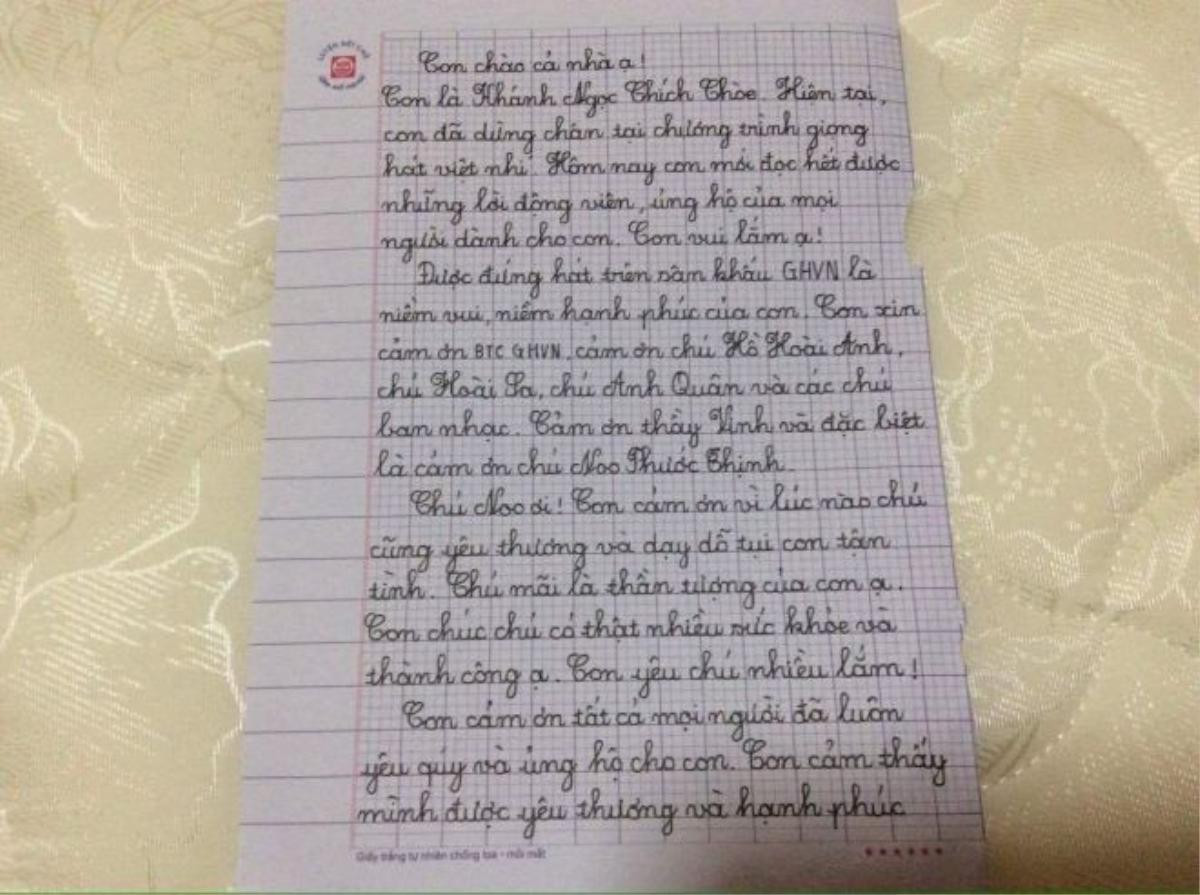 LUYỆN NÉT CHỮ
Con chào cả nhà ạ!
Con là Khánh Ngọc Chích Chòe. Hiện tại,
con đã dừng chân tại chương trình giọng
hát việt nhí. Hôm nay con mới đọc hết được
những lời động viên, ủng hộ của mọi
người dành cho con. Con vui lắm ạ!
Được đứng hát trên sân khấu GHVN là
niềm vui, niềm hạnh phúc của con. Con xin
cảm ơn BTC GHVN, cảm ơn chú Hồ Hoài Anh,
chú Hoài Sa, chú Anh Quân và các chú
ban nhạc. Cảm ơn thầy Vinh và đặc biệt
là cảm ơn chú Noo Phước Thịnh.
Chú Noo ơi! Con cảm ơn vì lúc nào chú
cũng yêu thương và dạy dỗ tụi con tận
tình. Chú mãi là thần tượng của con ạ.
Con chúc chú có thật nhiều sức khỏe và
thành công ạ. Con yêu chú nhiều lắm!
Con cảm ơn tất cả mọi người đã luôn
yêu quý và ủng hộ cho con. Con cảm thấy
mình được yêu thương và hạnh phúc
Giấy trắng tự nhiên chống lóa - mỏi mắt